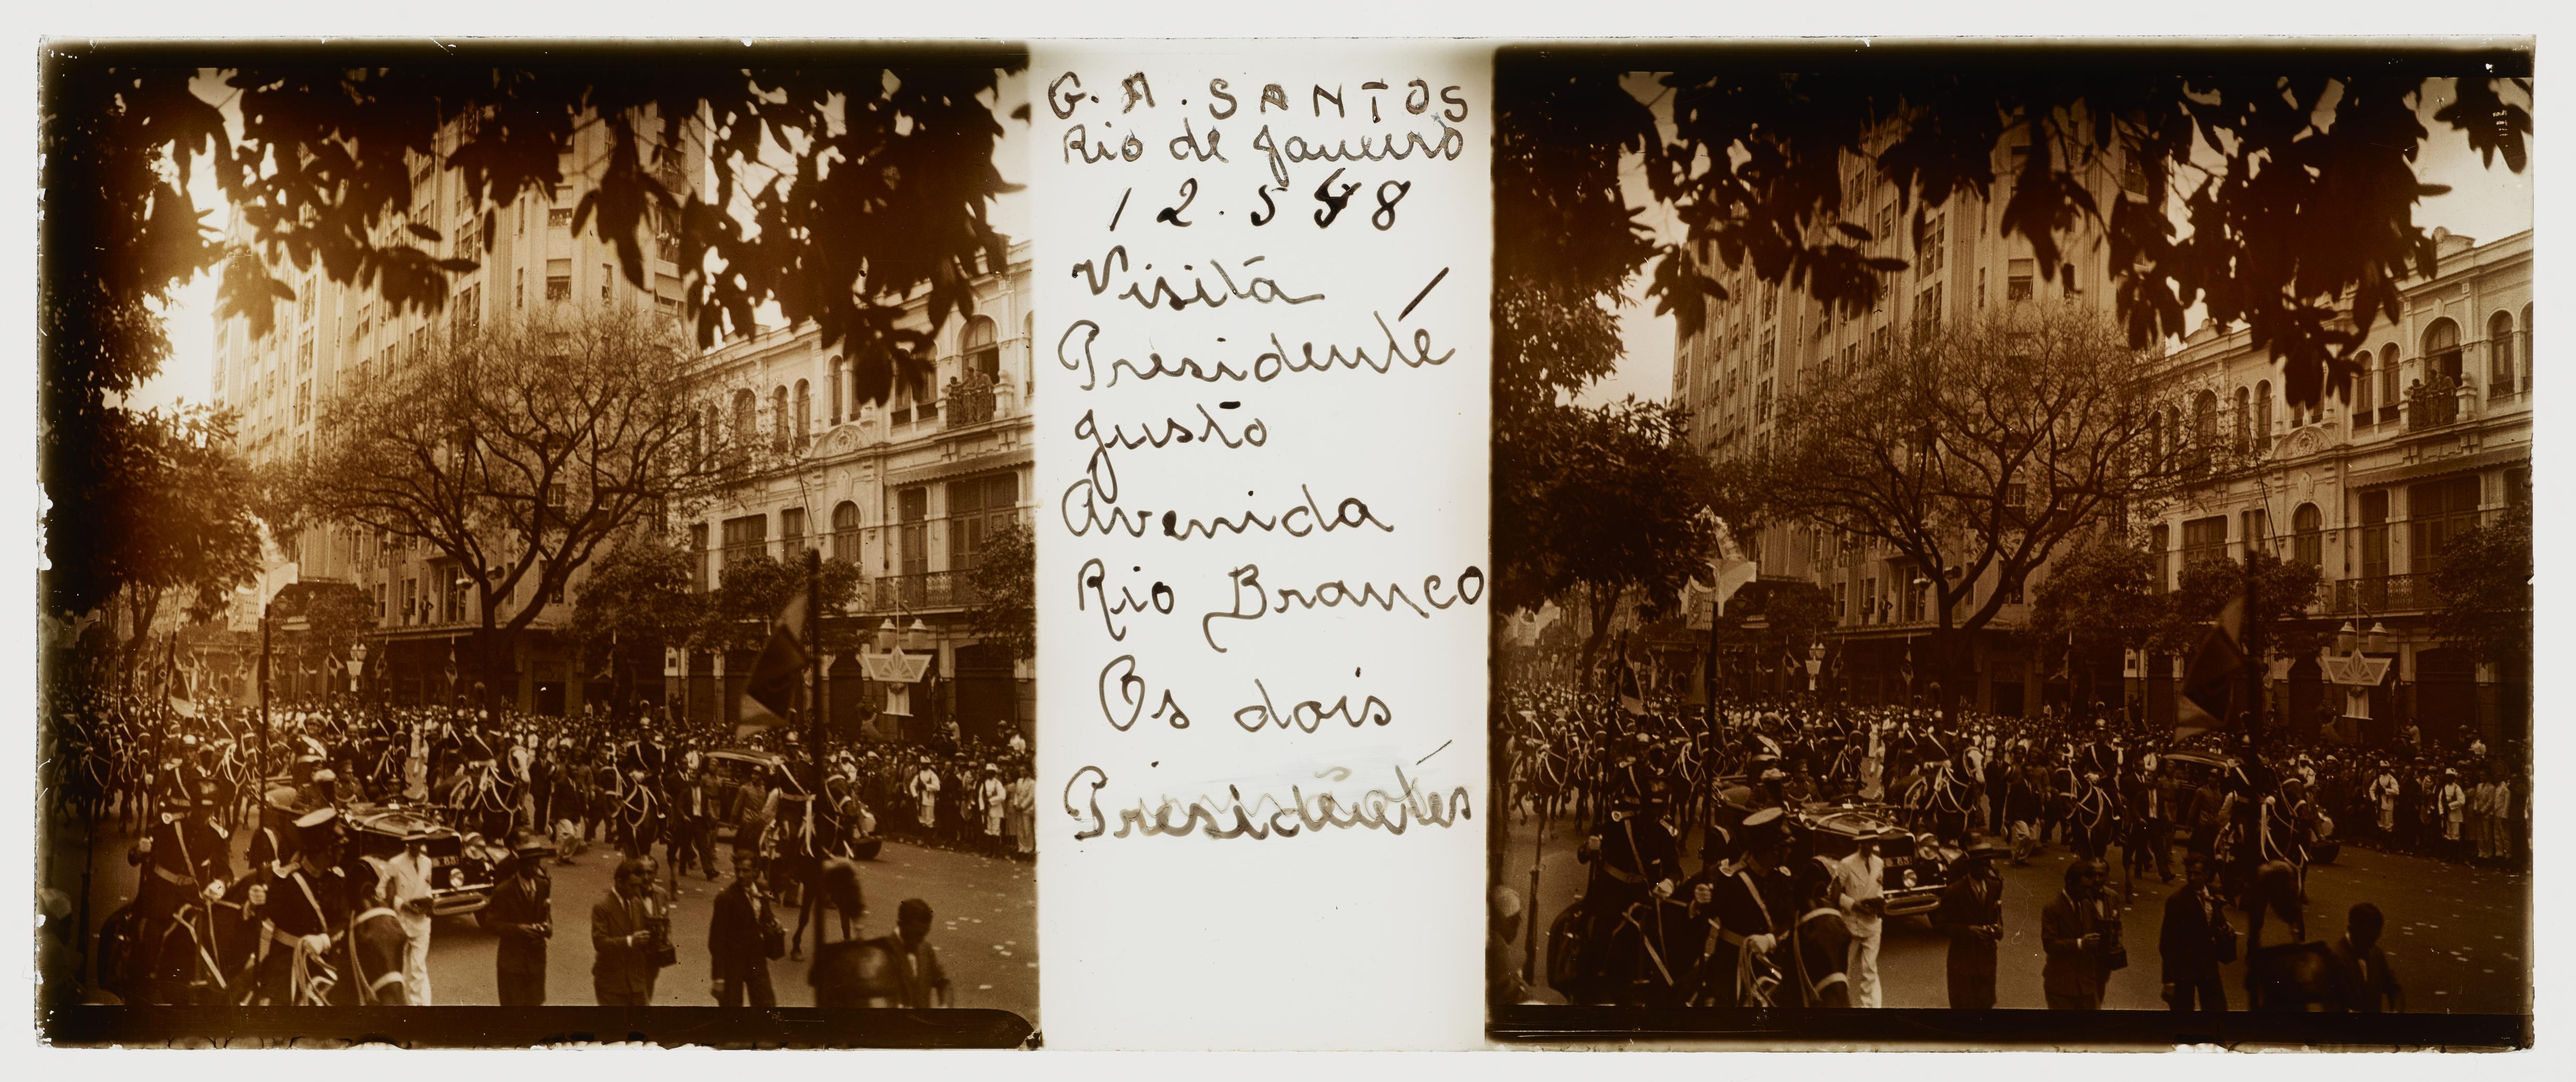 G. A. SANTOS
Rio de Janeiro
12.548
Visita
Presidente
Justo
Avenida
Rio Branco
Os dois
Presidentes